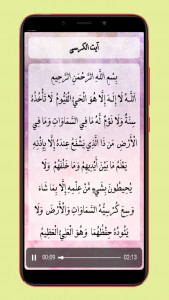 آیت الکرسی
بِسْمِ اللَّهِ الرَّحْمَنِ الرَّحِيمِ
اللَّهُ لَا إِلَهَ إِلَّا هُوَ الْحَيُّ الْقَيُّومُ لَا تَأْخُذُهُ
سِنَةٌ وَلَا نَوْمٌ لَهُ مَا فِي السَّمَاوَاتِ وَمَا فِي
الْأَرْضِ مَن ذَا الَّذِي يَشْفَعُ عِندَهُ إِلَّا بِإِذْنِهِ
يَعْلَمُ مَا بَيْنَ أَيْدِيهِمْ وَمَا خَلْفَهُمْ وَلَا
يُحِيطُونَ بِشَيْءٍ مِّنْ عِلْمِهِ إِلَّا بِمَا شَاءَ
وَسِعَ كُرْسِيُّهُ السَّمَاوَاتِ وَالْأَرْضَ وَلَا
يَئُودُهُ حِفْظُهُمَا وَهُوَ الْعَلِيُّ الْعَظِيمُ
00:09 02:13